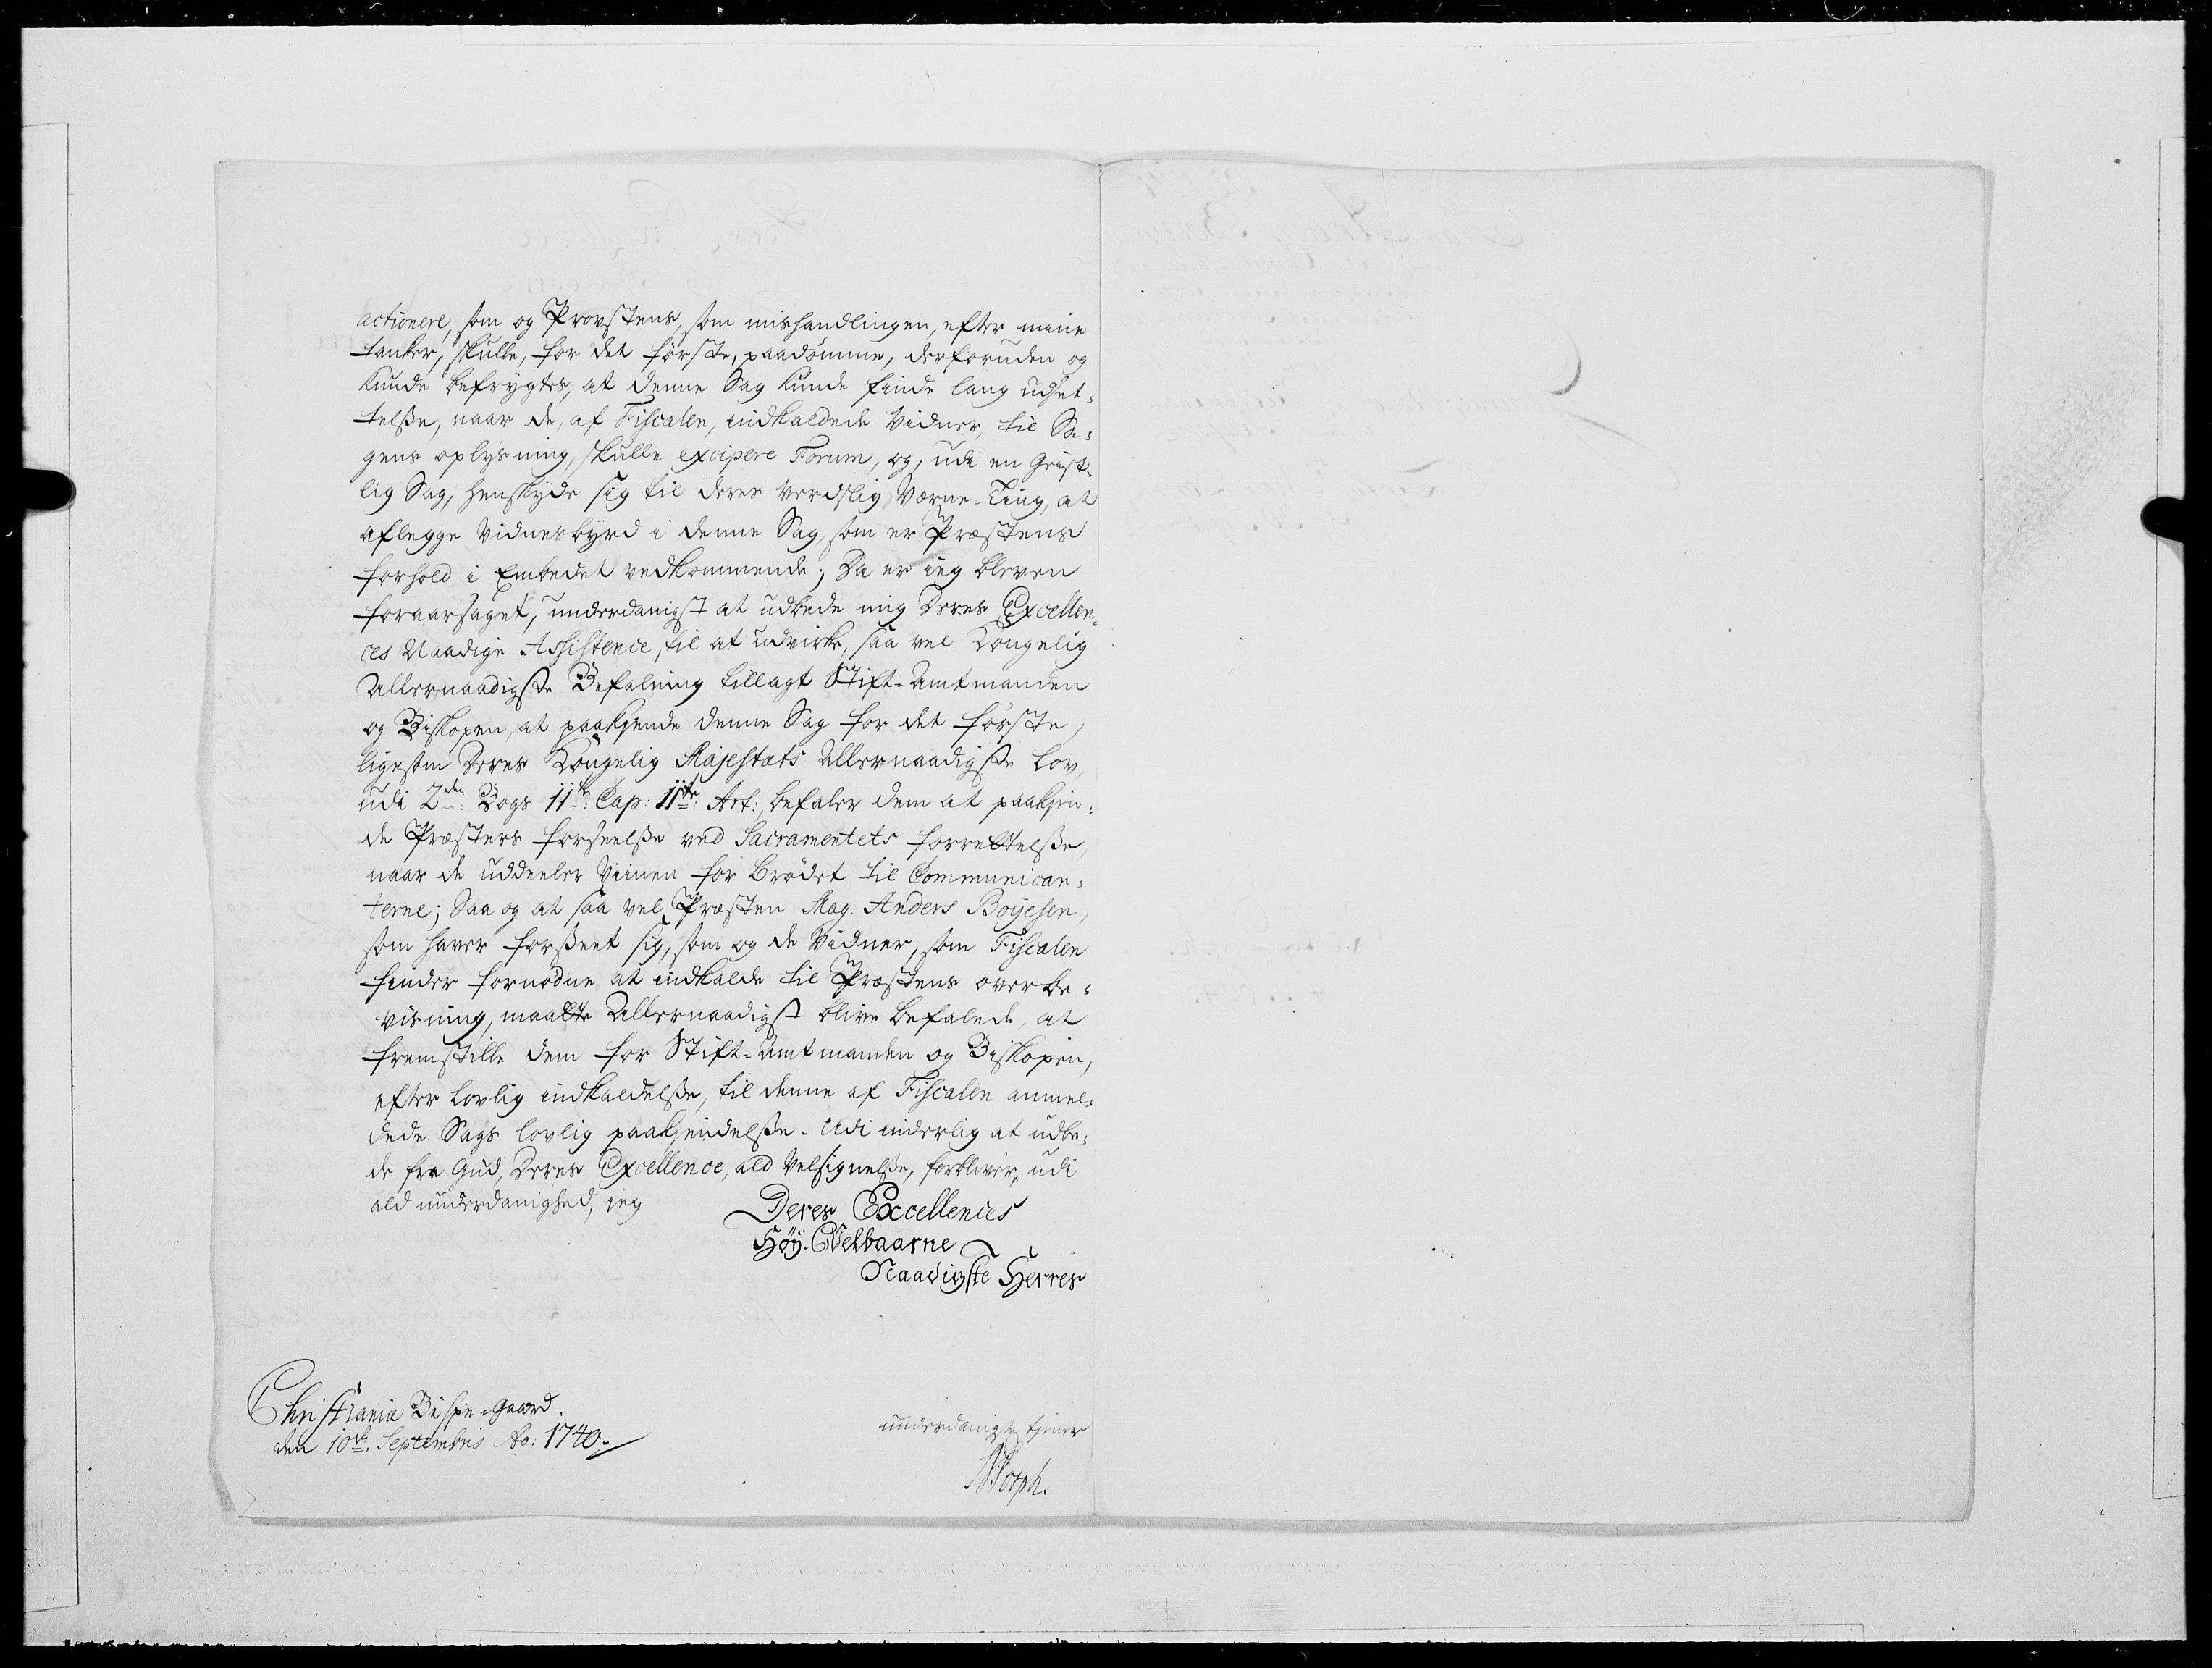 actionere, som og Provstens, som mishandlingen, efter mine
tanker, skulle, for det förste, paadömme, derforuden og
kunde befrygtes, at denne Sag kunde finde lang udsæt-
telsse, naar de, af Fiscalen, indkaldede Vidner, til Sa-
gens oplysning, skulle excipere Forum, og, udi en Geist-
lig Sag, henskyde sig til deres Verdslig Værne-Ting, at
aflegge Vidnesbyrd i denne Sag, som er Præstens
forhold i Embedet vedkommende; Da er ieg bleven
foraarsaget, underdanigst at udbede mig Deres Excellen-
ces Naadige Assistence, til at udvirke, saa vel Kongelig
Allernaadigste Befalning tillagt Stift-Amtmanden
og Biskopen, at paakjende denne Sag for det förste,
ligesom Deres Kongelig Majestæts Allernaadigste Lov,
udi 2den Bogs 11te Cap: 11te Art:, befaler dem at paakjen-
de Præsters forseelsse ved Sacramentets forrettelsse,
naar de uddeeler Viinen for Brödet til Communican-
terne; Saa og at saa vel Præsten Mag: Anders Boyesen,
som haver forsseet sig, som og de Vidner, som Fiscalen
finder fornödne at indkalde til Præstens overbe-
visning, maatte Allernaadigst blive befalede, at
fremstille dem for Stift-Amtmanden og Biskopen,
efter lovlig indkaldelsse, til denne af Fiscalen anmel-
dede Sags lovlig paakjendelsse. Udi inderlig at udbe-
de fra Gud, Deres Excellence, ald Velsignelsse, forbliver, udi
ald underdanighed, ieg
Deres Excellences
Höy-Edelbaarne
Naadigste Herres
Christiania Bispe-Gaard.
den 10de Septembris Ao: 1740.
underdanigste tjener
NDorph.